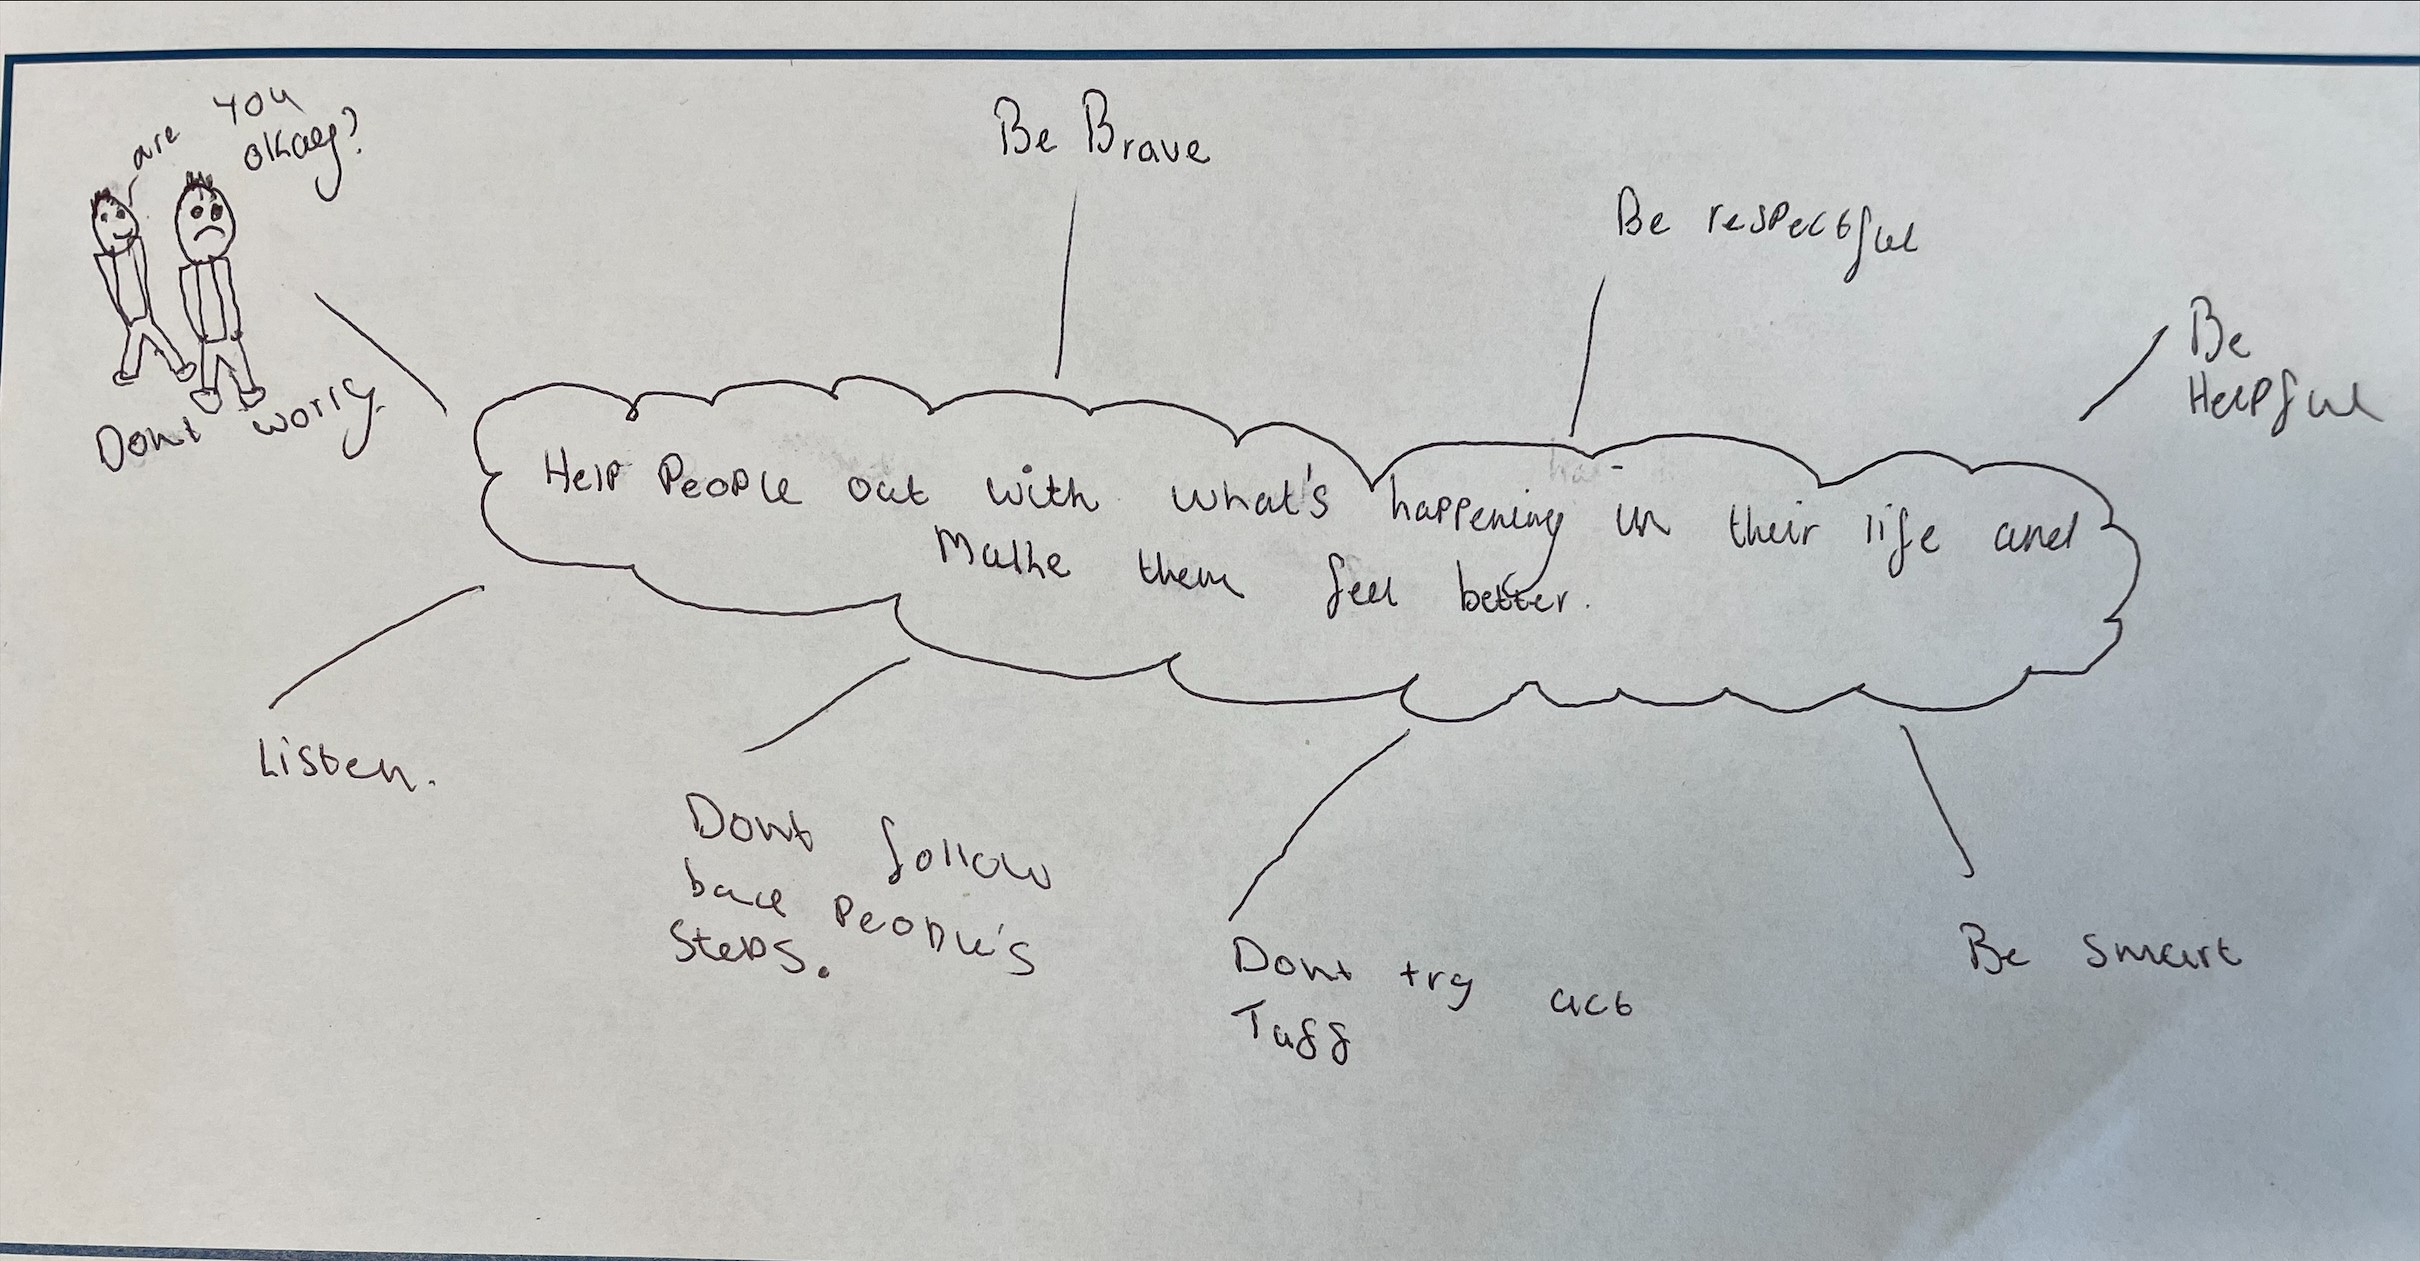 are you
okay?
Dont worry.
Be Brave
Be respectful
Be
Helpful
Help People out with what's happening in their life and
Make them feel better.
Listen.
Dont follow
people's
steps.
Dont try act
Tuff
Be smart